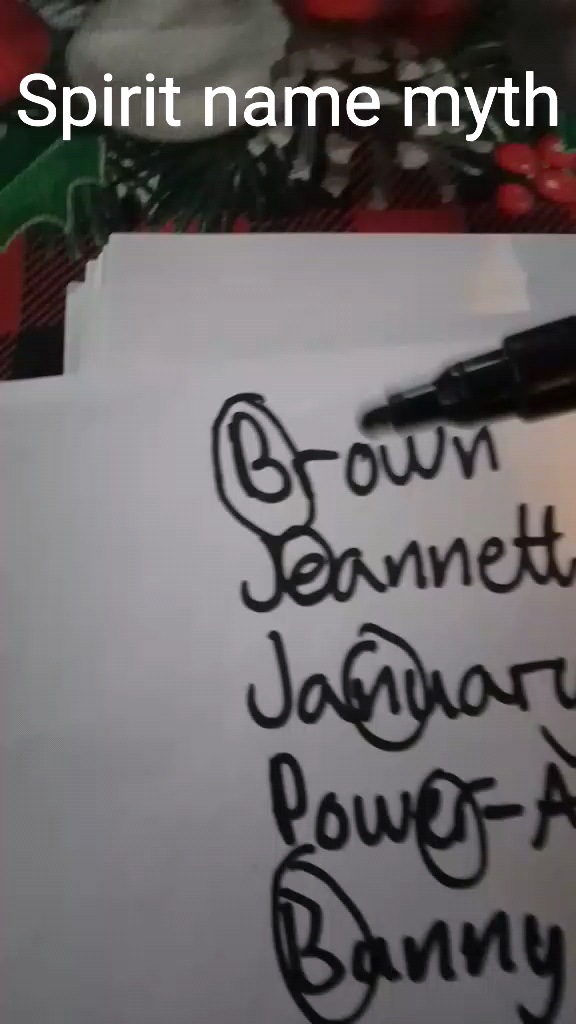 Spirit name myth
Brown
Jeannett
January
Power-A
Banny